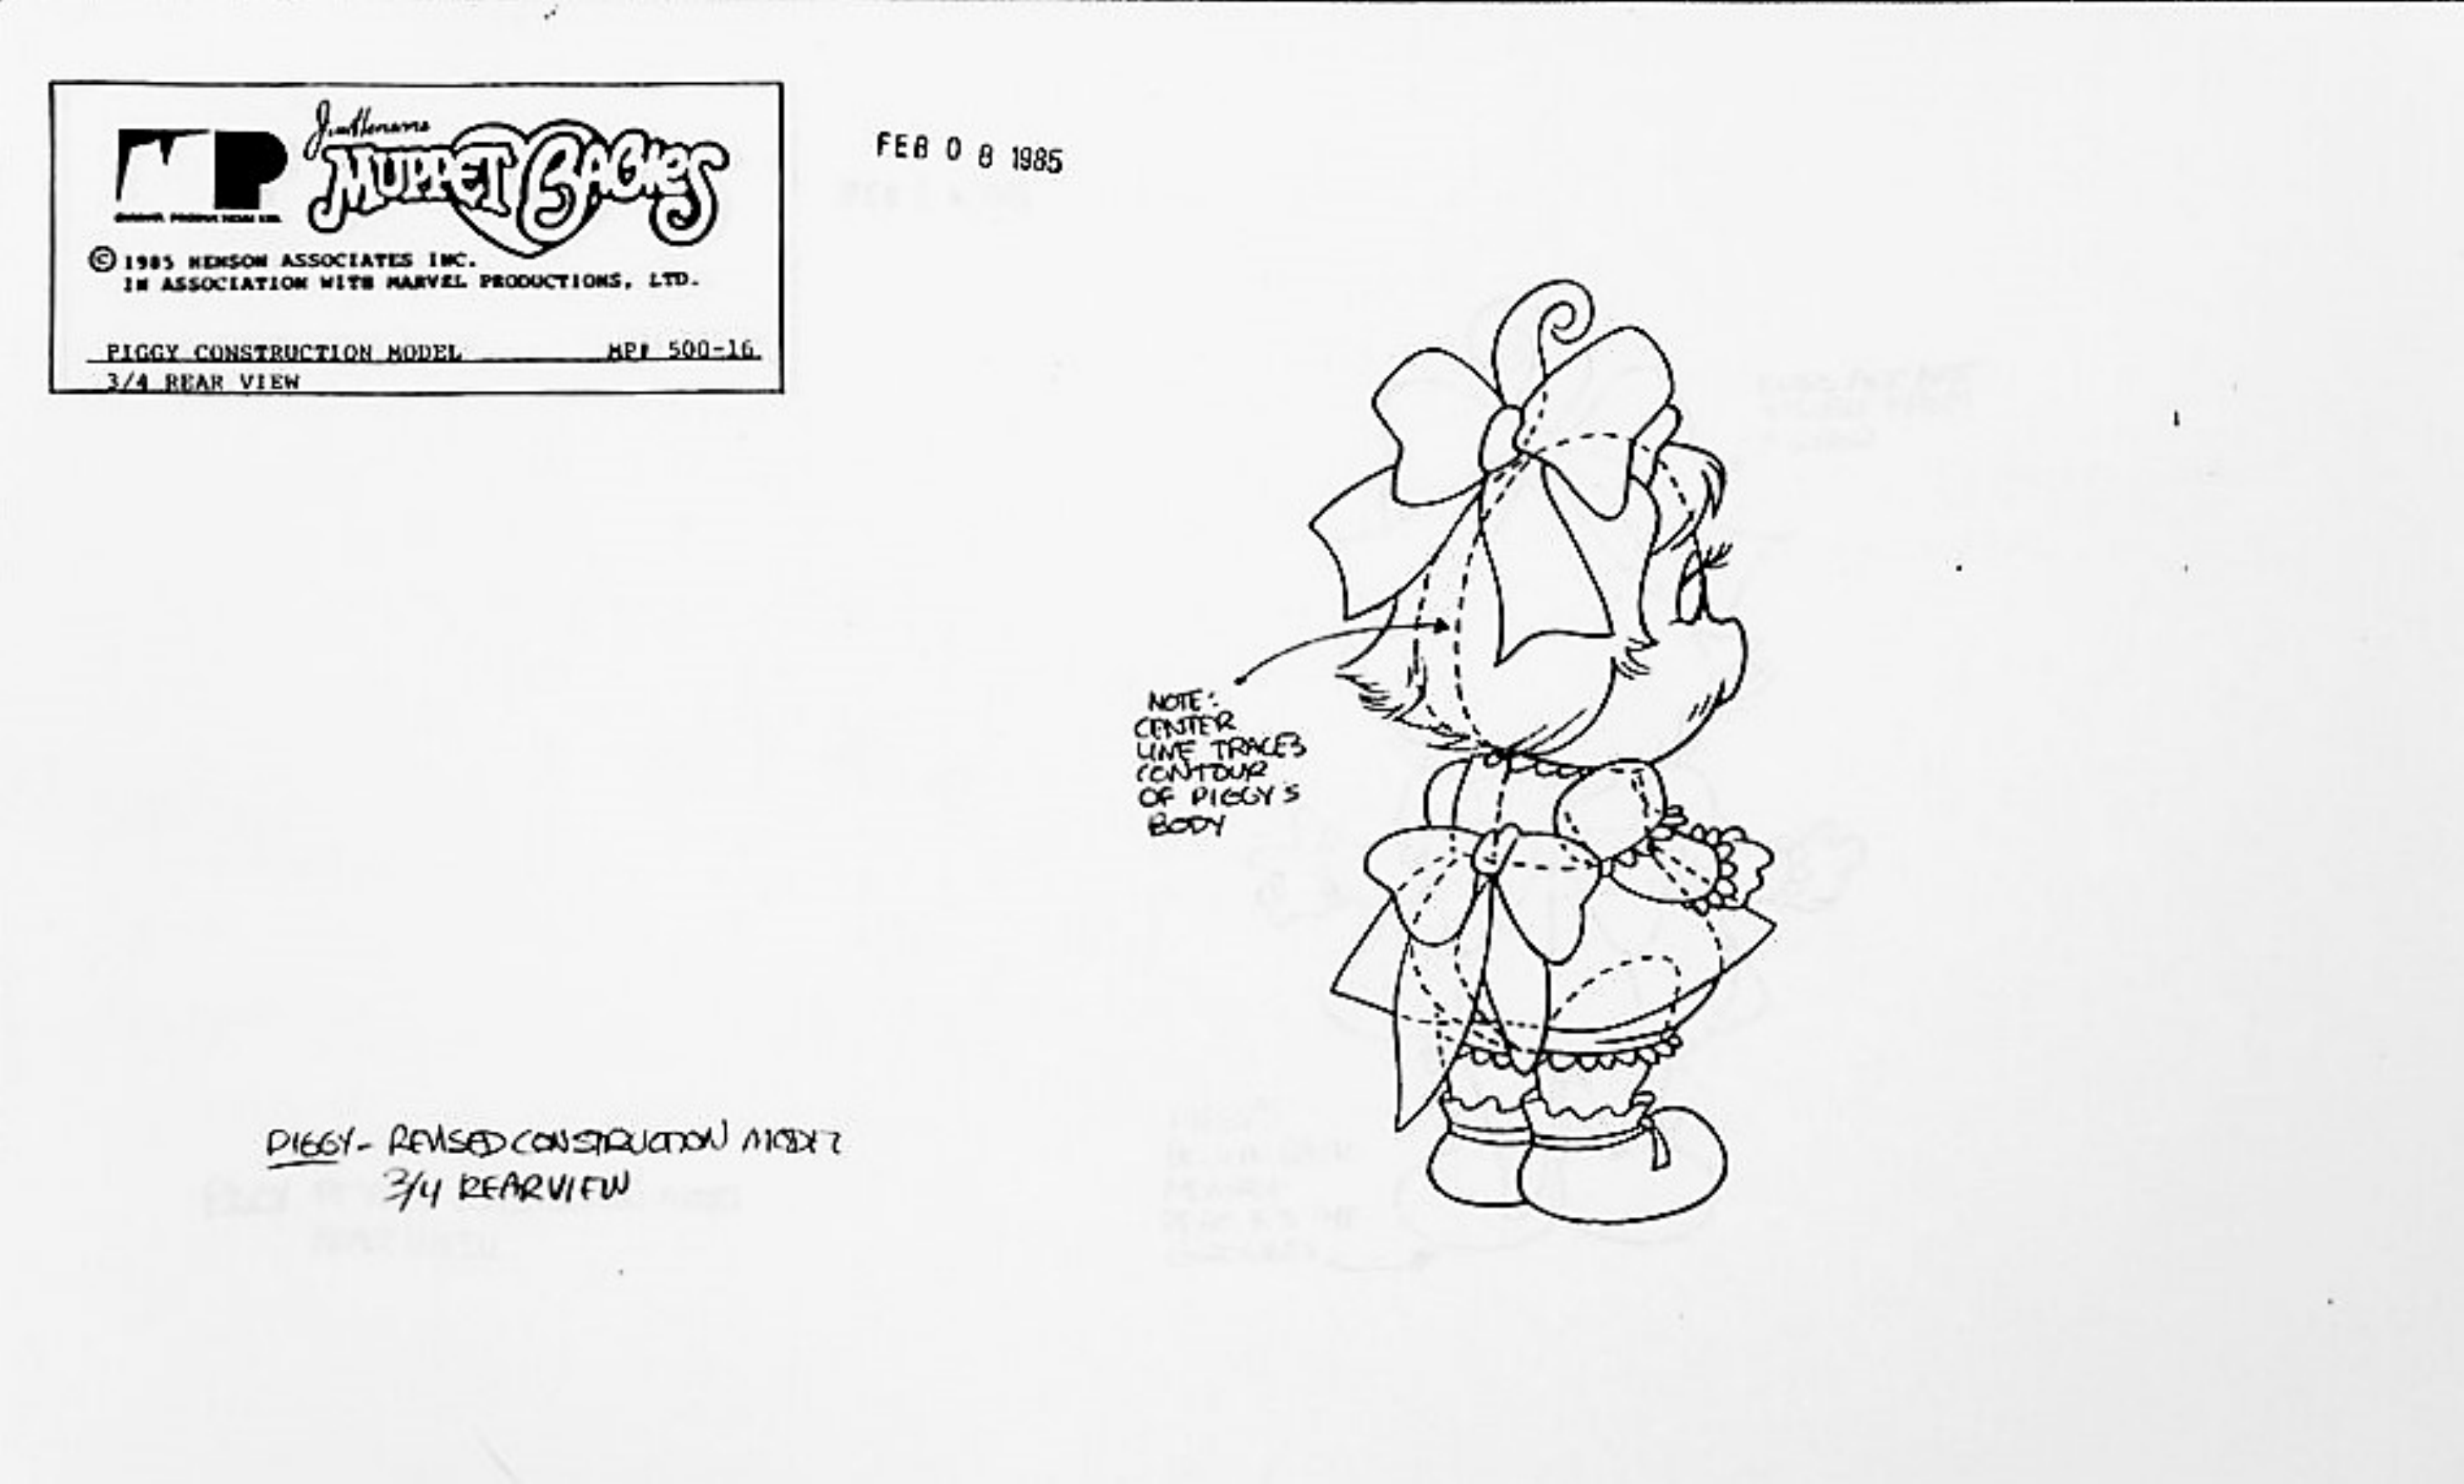 Jim Henson's
MUPPET BABIES
MP
© 1985 HENSON ASSOCIATES INC.
IN ASSOCIATION WITH MARVEL PRODUCTIONS, LTD.
PIGGY CONSTRUCTION MODEL MP# 500-16
3/4 REAR VIEW
FEB 08 1985
NOTE:
CENTER
LINE TRACES
CONTOUR
OF PIGGY'S
BODY
PIGGY- REVISED CONSTRUCTION MODEL
3/4 REAR VIEW